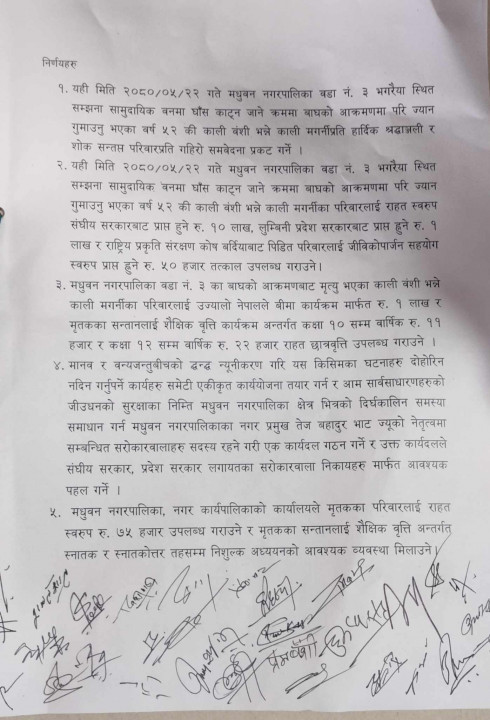 निर्णयहरु
१. यही मिति २०८०/०५/२२ गते मधुवन नगरपालिका वडा नं. ३ भगरैया स्थित
सम्झना सामुदायिक वनमा घाँस काट्न जाने क्रममा बाघको आक्रमणमा परि ज्यान
गुमाउनु भएका वर्ष ५२ की काली वंशी भन्ने काली मगर्नीप्रति हार्दिक श्रद्धाञ्जली र
शोक सन्तप्त परिवारप्रति गहिरो समवेदना प्रकट गर्ने ।
२. यही मिति २०८०/०५/२२ गते मधुवन नगरपालिका वडा नं. ३ भगरैया स्थित
सम्झना सामुदायिक वनमा घाँस काट्न जाने क्रममा बाघको आक्रमणमा परि ज्यान
गुमाउनु भएका वर्ष ५२ की काली वंशी भन्ने काली मगर्नीका परिवारलाई राहत स्वरुप
संघीय सरकारबाट प्राप्त हुने रु. १० लाख, लुम्विनी प्रदेश सरकारबाट प्राप्त हुने रु. १
लाख र राष्ट्रिय प्रकृति संरक्षण कोष बर्दियाबाट पिडित परिवारलाई जीविकोपार्जन सहयोग
स्वरुप प्राप्त हुने रु. ५० हजार तत्काल उपलब्ध गराउने।
३. मधुवन नगरपालिका वडा नं. ३ का बाघको आक्रमणबाट मृत्यु भएका काली वंशी भन्ने
काली मगर्नीका परिवारलाई उज्यालो नेपालले बीमा कार्यक्रम मार्फत रु. १ लाख र
मृतकका सन्तानलाई शैक्षिक वृत्ति कार्यक्रम अन्तर्गत कक्षा १० सम्म वार्षिक रु. ११
हजार र कक्षा १२ सम्म वार्षिक रु. २२ हजार राहत छात्रवृत्ति उपलब्ध गराउने ।
४. मानव र वन्यजन्तुबीचको द्वन्द्व न्यूनीकरण गरि यस किसिमका घटनाहरु दोहोरिन
नदिन गर्नुपर्ने कार्यहरु समेटी एकीकृत कार्ययोजना तयार गर्न र आम सार्वसाधारणहरुको
जीउधनको सुरक्षाका निम्ति मधुवन नगरपालिका क्षेत्र भित्रको दिर्घकालिन समस्या
समाधान गर्न मधुवन नगरपालिकाका नगर प्रमुख तेज बहादुर भाट ज्यूको नेतृत्वमा
सम्बन्धित सरोकारवालाहरु सदस्य रहने गरी एक कार्यदल गठन गर्ने र उक्त कार्यदलले
संघीय सरकार, प्रदेश सरकार लगायतका सरोकारवाला निकायहरु मार्फत आवश्यक
पहल गर्ने ।
५. मधुवन नगरपालिका, नगर कार्यपालिकाको कार्यालयले मृतकका परिवारलाई राहत
स्वरुप रु. ७५ हजार उपलब्ध गराउने र मृतकका सन्तानलाई शैक्षिक वृत्ति अन्तर्गत
स्नातक र स्नातकोत्तर तहसम्म निशुल्क अध्ययनको आवश्यक व्यवस्था मिलाउने।